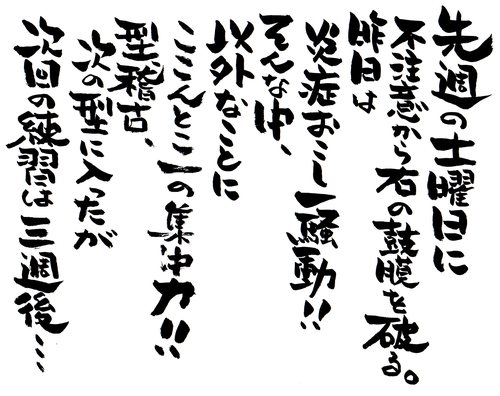 先週の土曜日に
不注意から右の鼓膜を破る。
昨日は
炎症おこし一騒動!!
そんな中、
以外なことに
ここんとこ一の集中力!!
型稽古、
次の型に入ったが
次回の練習は三週後…